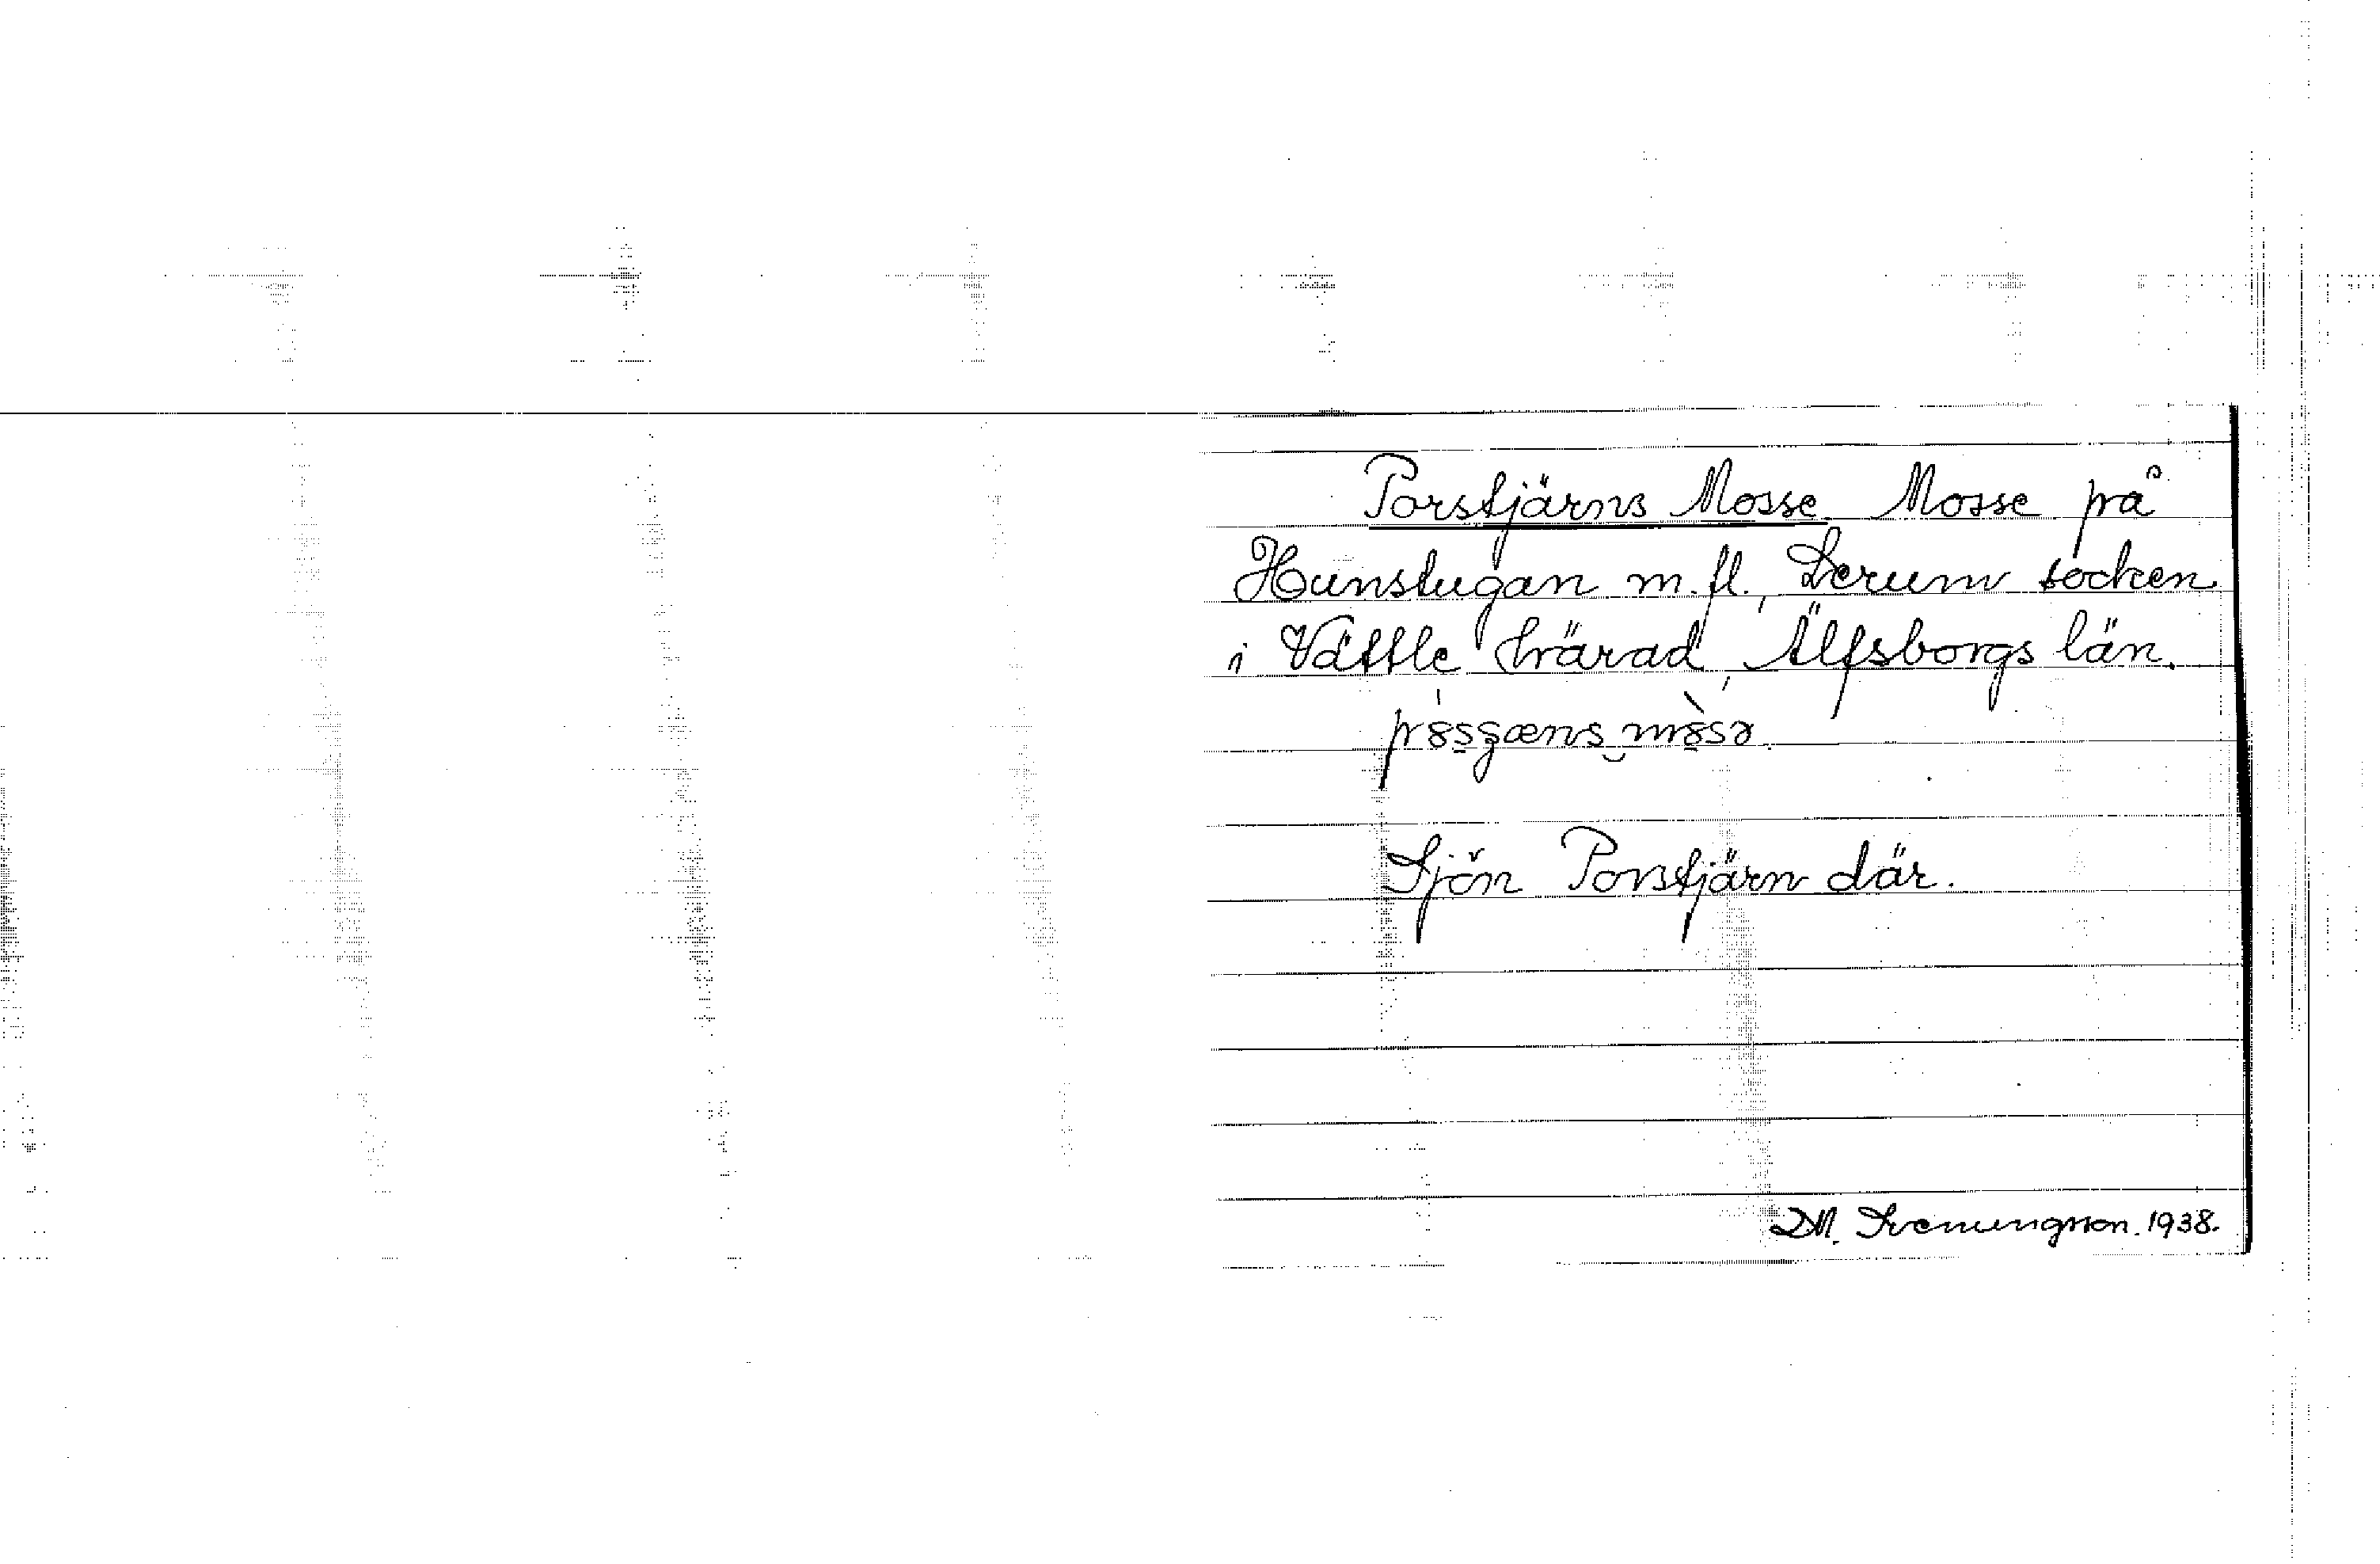 Porstjärns Mosse. Mosse på
Hunstugan m.fl., Lerum socken
i Vättle härad, Älfsborgs län.
Sjön Porstjärn där.
D.M. Svenungsson. 1938.